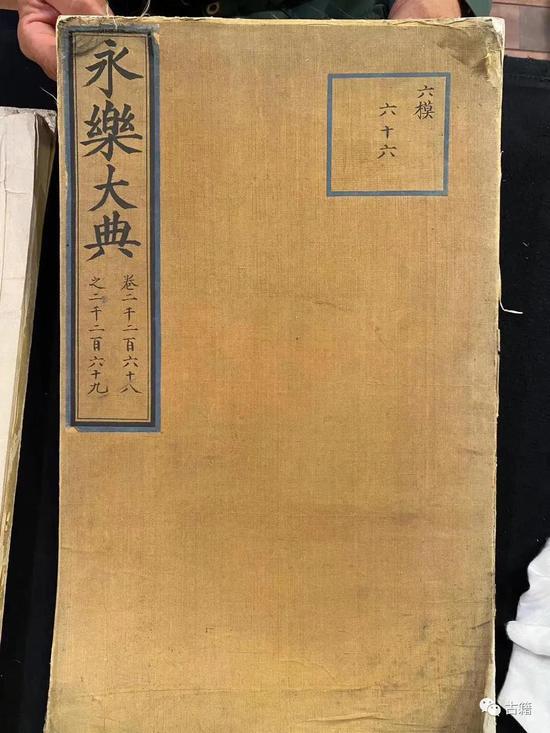 永樂大典
卷二千二百六十八
之二千二百六十九
六模
六十六
古籍